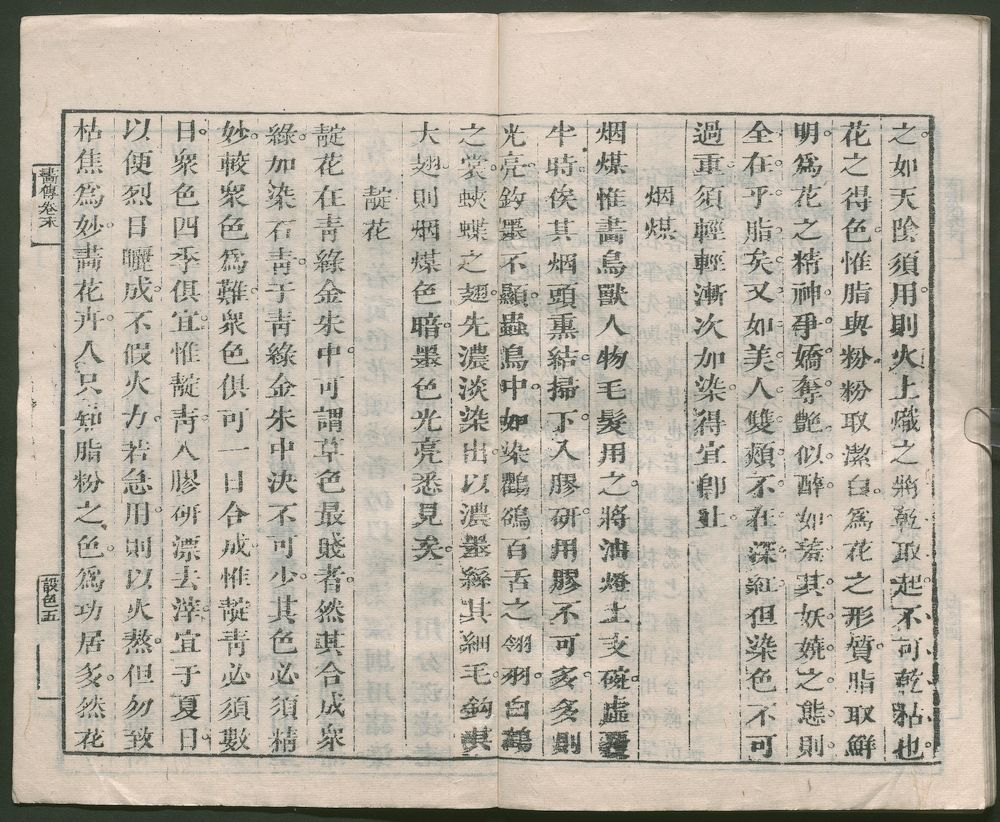 之如天陰須用則火上熾之將乾取起不可乾黏也
花之得色惟脂與粉粉取潔白為花之形質脂取鮮
明為花之精神爭嬌奪艶似醉如羞其妖嬈之態則
全在乎脂矣又如美人雙頰不在深紅但染色不可
過重須輕輕漸次加染得宜卽止
烟煤
烟煤惟畵鳥獸人物毛髮用之將油燈上支碗虛覆
半時俟其烟頭熏結掃下入膠研用膠不可多多則
光亮鈎墨不顯蟲鳥中如染鸜鵒百舌之翎羽白鷴
之裳蛺蝶之翅先濃淡染出以濃墨絲其細毛鈎其
大翅則烟煤色暗墨色光亮悉見矣
靛花
靛花在青綠金朱中可謂草色最賤者然其合成衆
綠加染石青于青綠金朱中決不可少其色必須精
妙較衆色為難衆色俱可一日合成惟靛青必須數
日衆色四季俱宜惟靛青入膠研漂去滓宜于夏日
以便烈日曬成不假火力若急用則以火熬但勿致
枯焦為妙畵花卉人只知脂粉之色為功居多然花
畵傳卷末
設色五